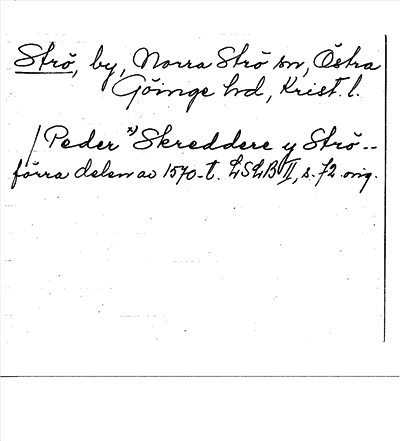 Strö, by, Norra Strö sn, Östra
Göinge hd, Krist. l.
/ Peder x) Skreddere y Strö --
förra delen av 1570-t. LSLB II, s. 72 orig.